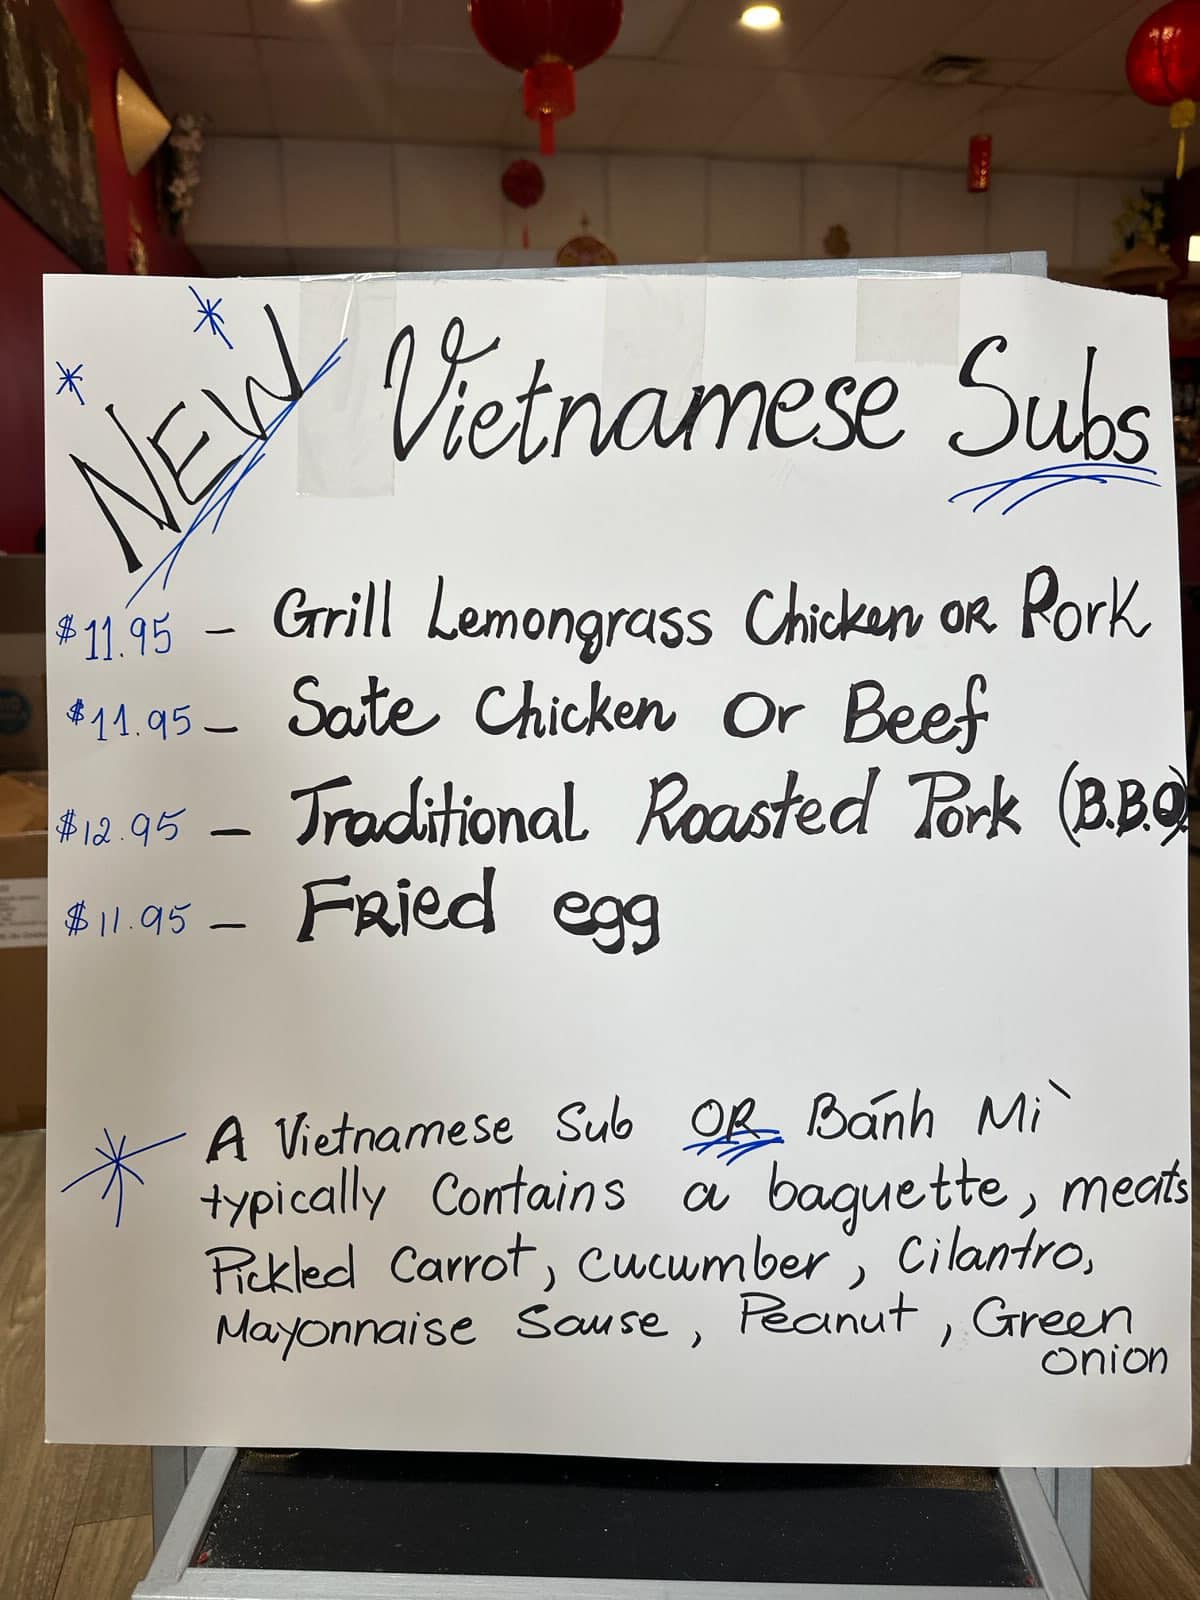 NEW
Vietnamese Subs
$11.95 – Grill Lemongrass Chicken OR Pork
$11.95 – Sate Chicken Or Beef
$12.95 – Traditional Roasted Pork (B.B.Q)
$11.95 – Fried egg
A Vietnamese Sub OR Bánh Mì
typically Contains a baguette, meats
Pickled Carrot, cucumber, Cilantro,
Mayonnaise Sause, Peanut, Green
onion